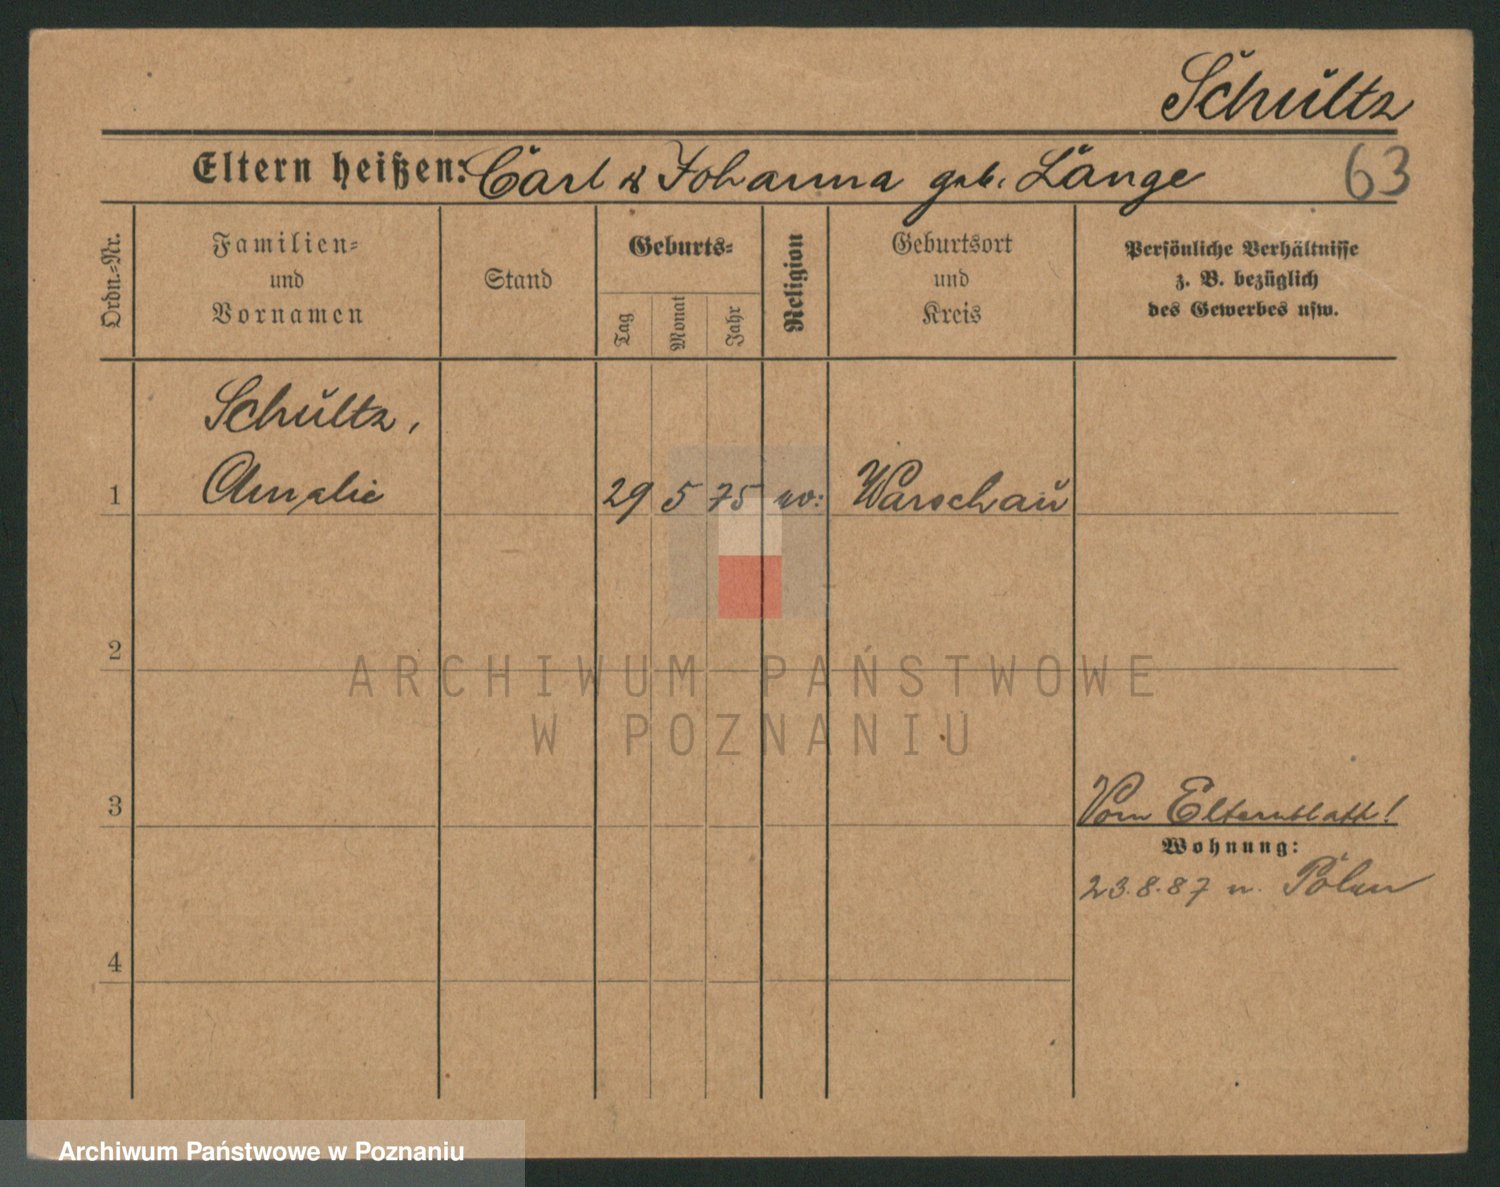 Schultz
Eltern heißen: Carl & Johanna geb. Lange 63
Ordn.=Nr.
Familien=
und
Vornamen
Stand
Geburts=
Tag
Monat
Jahr
Religion
Geburtsort
und
Kreis
Persönliche Verhältnisse
z. B. bezüglich
des Gewerbes usw.
Schultz,
1 Amalie 29 5 75 ev: Warschau
2
ARCHIWUM PAŃSTWOWE
W POZNANIU
3 Vom Elternblatt!
Wohnung:
23.8.87 n. Polen
4
Archiwum Państwowe w Poznaniu